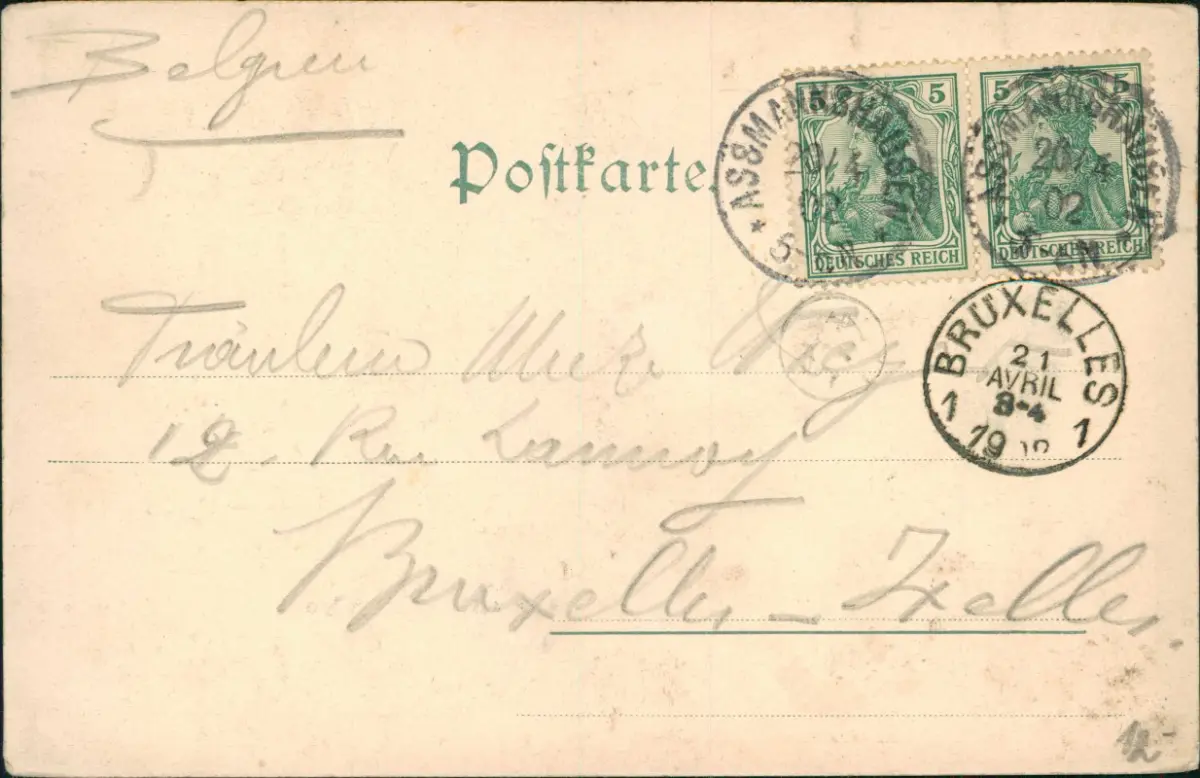 Belgien
Postkarte.
5 5 5 5
DEUTSCHES REICH DEUTSCHES REICH
* ASSMANNSHAUSEN * 20/4 02 5-
* ASSMANNSHAUSEN * 20/4 02 N
Fräulein
BRUXELLES 21 AVRIL 3-4 1902 1 1
12. Rue Lannoy
Bruxelles – Ixelles.
12-